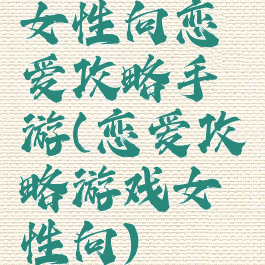 女性向恋
爱攻略手
游(恋爱攻
略游戏女
性向)